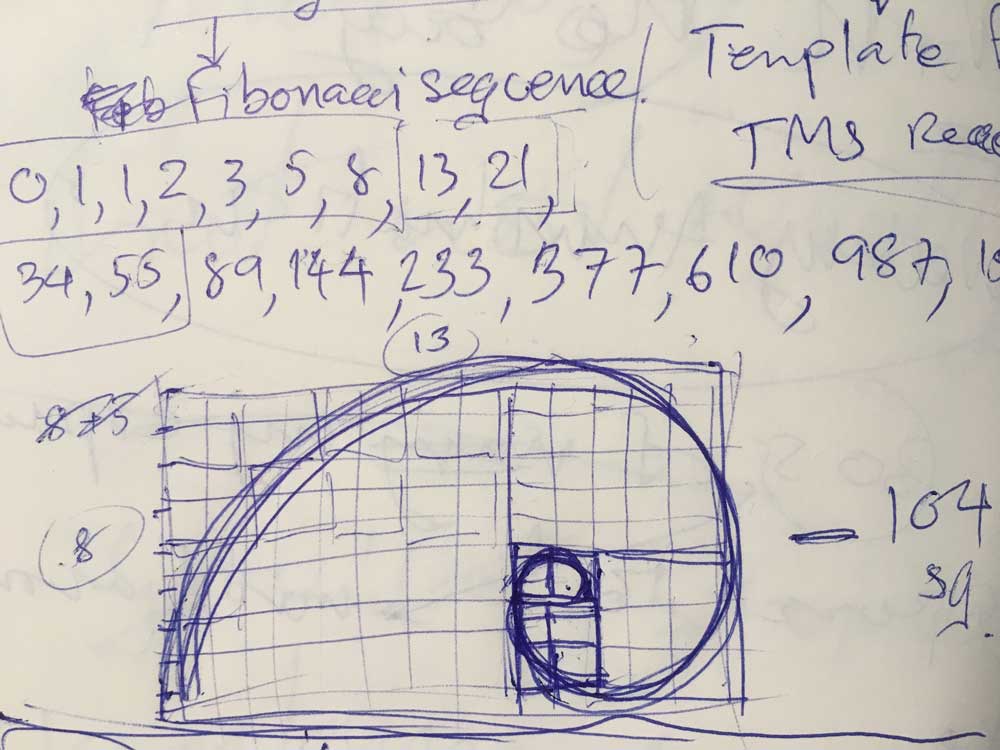 Fibonacci seqcence.
Template
TMS
0, 1, 1, 2, 3, 5, 8, 13, 21,
34, 55, 89, 144, 233, 377, 610, 987,
13
8
- 104
sq.